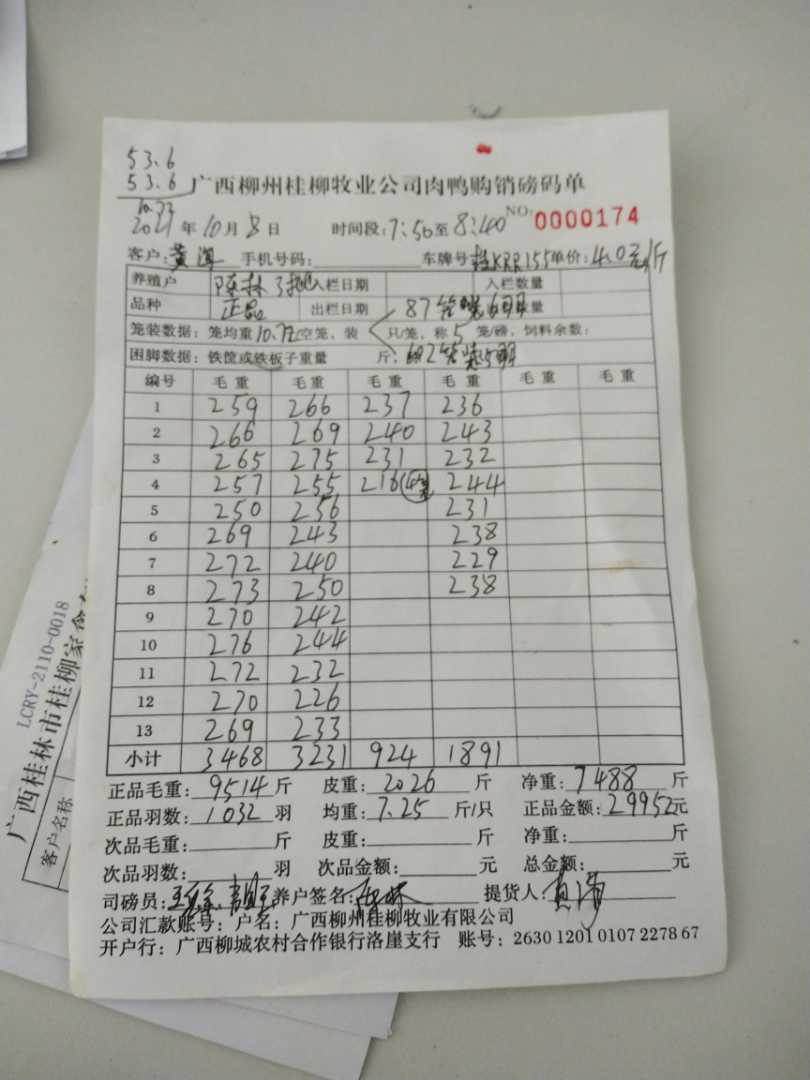 53.6
53.6
10.72
广西柳州桂柳牧业公司肉鸭购销磅码单
2021年10月8日 时间段:7:50至8:40 NO: 0000174
客户: 手机号码: 车牌号:桂KRR155 单价:4.0元/斤
养殖户 陈林 入栏日期 入栏数量
品种 正品 出栏日期 87笼装6羽 量
笼装数据: 笼均重10.72空笼, 装 只/笼, 称5笼/磅, 饲料余数:
困脚数据: 铁筐或铁板子重量 斤; 2笼装5羽
编号 毛重 毛重 毛重 毛重 毛重 毛重
1 259 266 237 236
2 266 269 240 243
3 265 275 231 232
4 257 255 216(4笼) 244
5 250 256 231
6 269 243 238
7 272 240 229
8 273 250 238
9 270 242
10 276 244
11 272 232
12 270 226
13 269 233
小计 3468 3231 924 1891
正品毛重: 9514 斤 皮重: 2026 斤 净重: 7488 斤
正品羽数: 1032 羽 均重: 7.25 斤/只 正品金额: 29952元
次品毛重: 斤 皮重: 斤 净重: 斤
次品羽数: 羽 次品金额: 元 总金额: 元
司磅员: 养户签名: 陈林 提货人:
公司汇款账号: 户名: 广西柳州桂柳牧业有限公司
开户行: 广西柳城农村合作银行洛崖支行 账号: 2630 1201 0107 2278 67
LCRY-2110-0018
广西桂林市桂柳家禽
客户名称